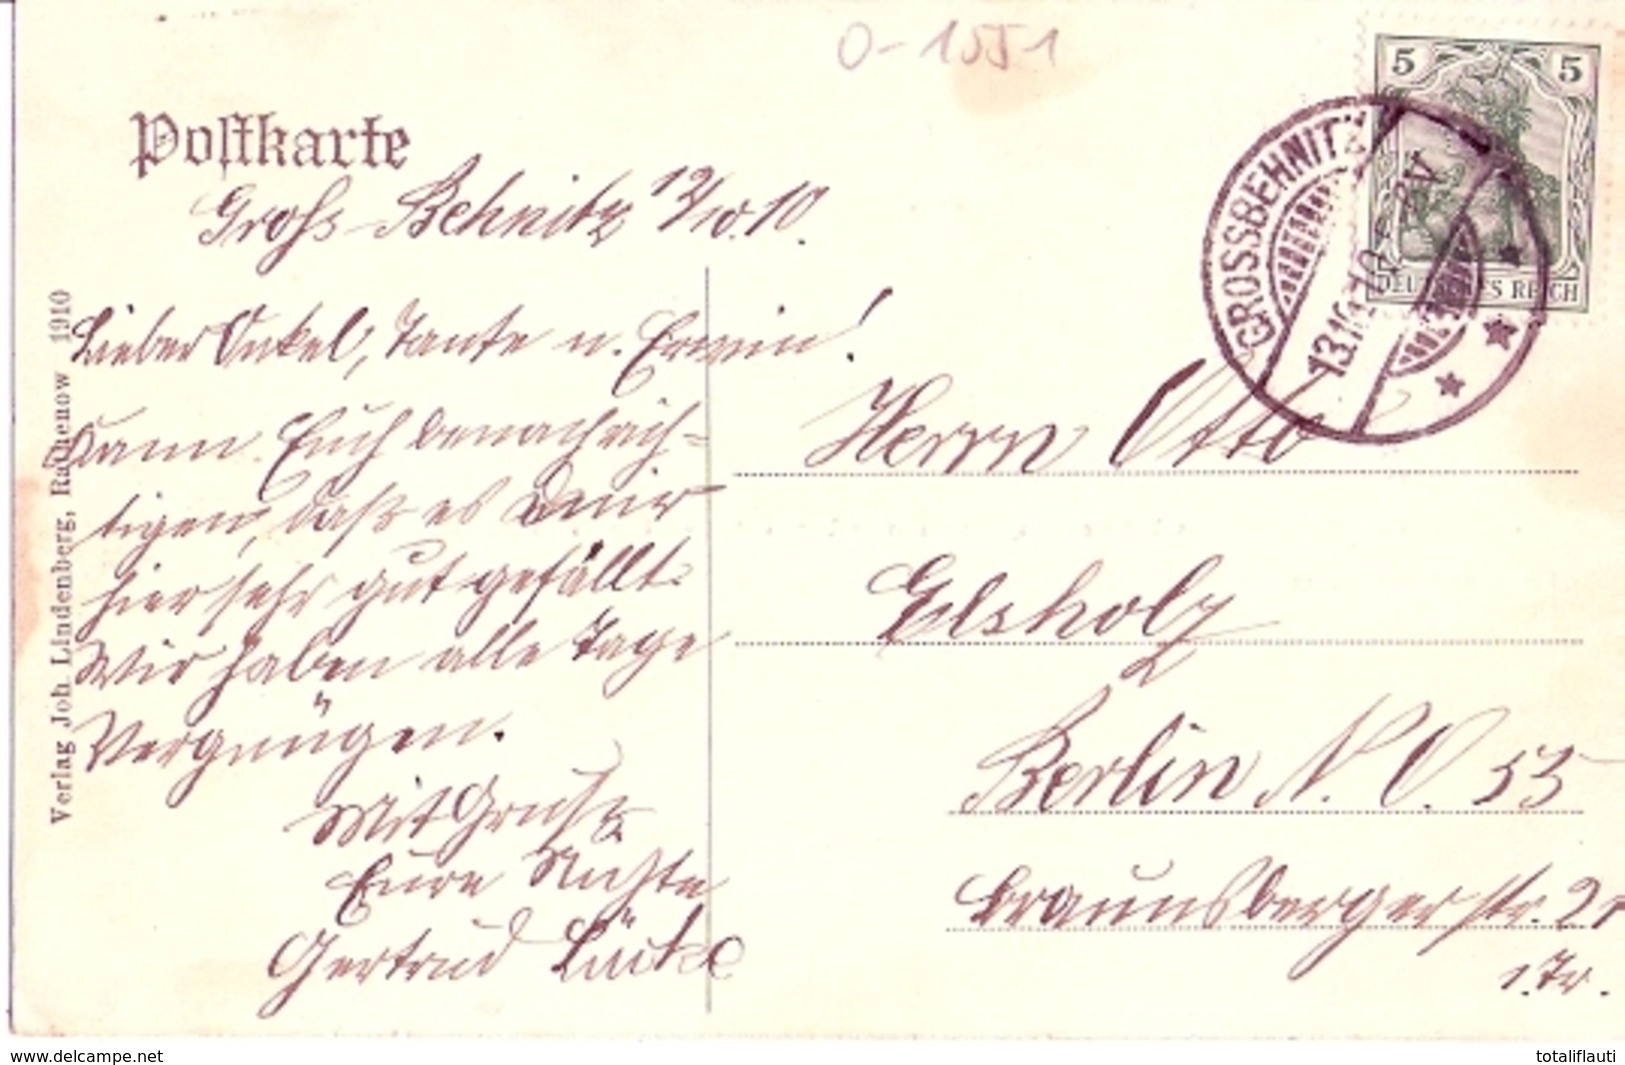 O-1551
5 5
DEUTSCHES REICH
GROSSBEHNITZ
13.10.10
Postkarte
Groß-Behnitz 12/10.10.
Lieber Onkel, Tante u. Erwin!
Kann Euch benachrich-
tigen, daß es mir
hier sehr gut gefällt.
Wir haben alle Tage
Vergnügen.
Mit Gruß
Eure Nichte
Gertrud Lücke
Herrn Otto
Elsholz
Berlin N.O. 55
Braunsbergerstr.
I. Tr.
Verlag Joh. Lindenberg, Rathenow 1910
www.delcampe.net
totaliflauti